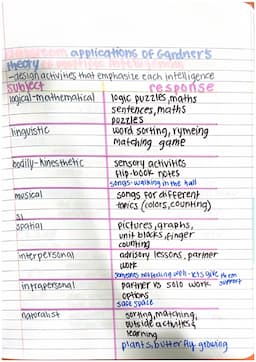 classroom applications of Gardner's
theory of multiple intelligences
-design activities that emphasize each intelligence
subject response
logical-mathematical logic puzzles, maths
sentences, maths
puzzles
linguistic word sorting, rymeing
matching game
bodily-kinesthetic sensory activities
flip-book notes
songs-walking in the hall
musical songs for different
topics (colors, counting)
spatial pictures, graphs,
unit blocks, finger
counting
interpersonal advisory lessons, partner
work
someones not feeling well - lets give them
support
intrapersonal partner vs solo work
options
safe space
naturalist sorting, matching,
outside activities &
learning
plants, butterfly growing